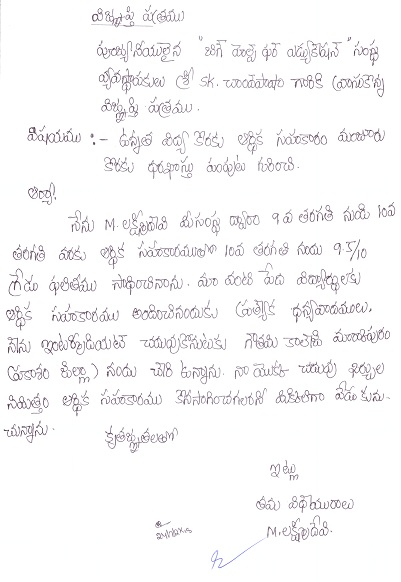 విజ్ఞప్తి పత్రము
పూజ్యనీయులైన "బిగ్ హెల్ప్ ఫర్ ఎడ్యుకేషన్" సంస్థ
వ్యవస్థాపకులు శ్రీ SK. చాంద్‌పాషా గారికి వ్రాసుకొన్న
విజ్ఞప్తి పత్రము.
విషయము :- ఉన్నత విద్య కొరకు ఆర్థిక సహకారం మంజూరు
కొరకు ధరఖాస్తు పంపుట గురించి.
ఆర్యా!
నేను M. లక్ష్మీదేవి మీ సంస్థ ద్వారా 9వ తరగతి నుండి 10వ
తరగతి వరకు ఆర్థిక సహకారముతో 10వ తరగతి నందు 9.5/10
గ్రేడు ఫలితము సాధించినాను. మా వంటి పేద విద్యార్థులకు
ఆర్థిక సహకారము అందించినందుకు ప్రత్యేక ధన్యవాదములు.
నేను ఇంటర్మీడియట్ చదువుకొనుటకు గౌతమి కాలేజి మార్కాపురం
(ప్రకాశం జిల్లా) నందు చేరి ఉన్నాను. నా యొక్క చదువు ఖర్చుల
నిమిత్తం ఆర్థిక సహకారము కొనసాగించగలరని వేడుకును-
చున్నాను.
కృతజ్ఞతలతో
ఇట్లు
తమ విధేయురాలు
M. లక్ష్మీదేవి.